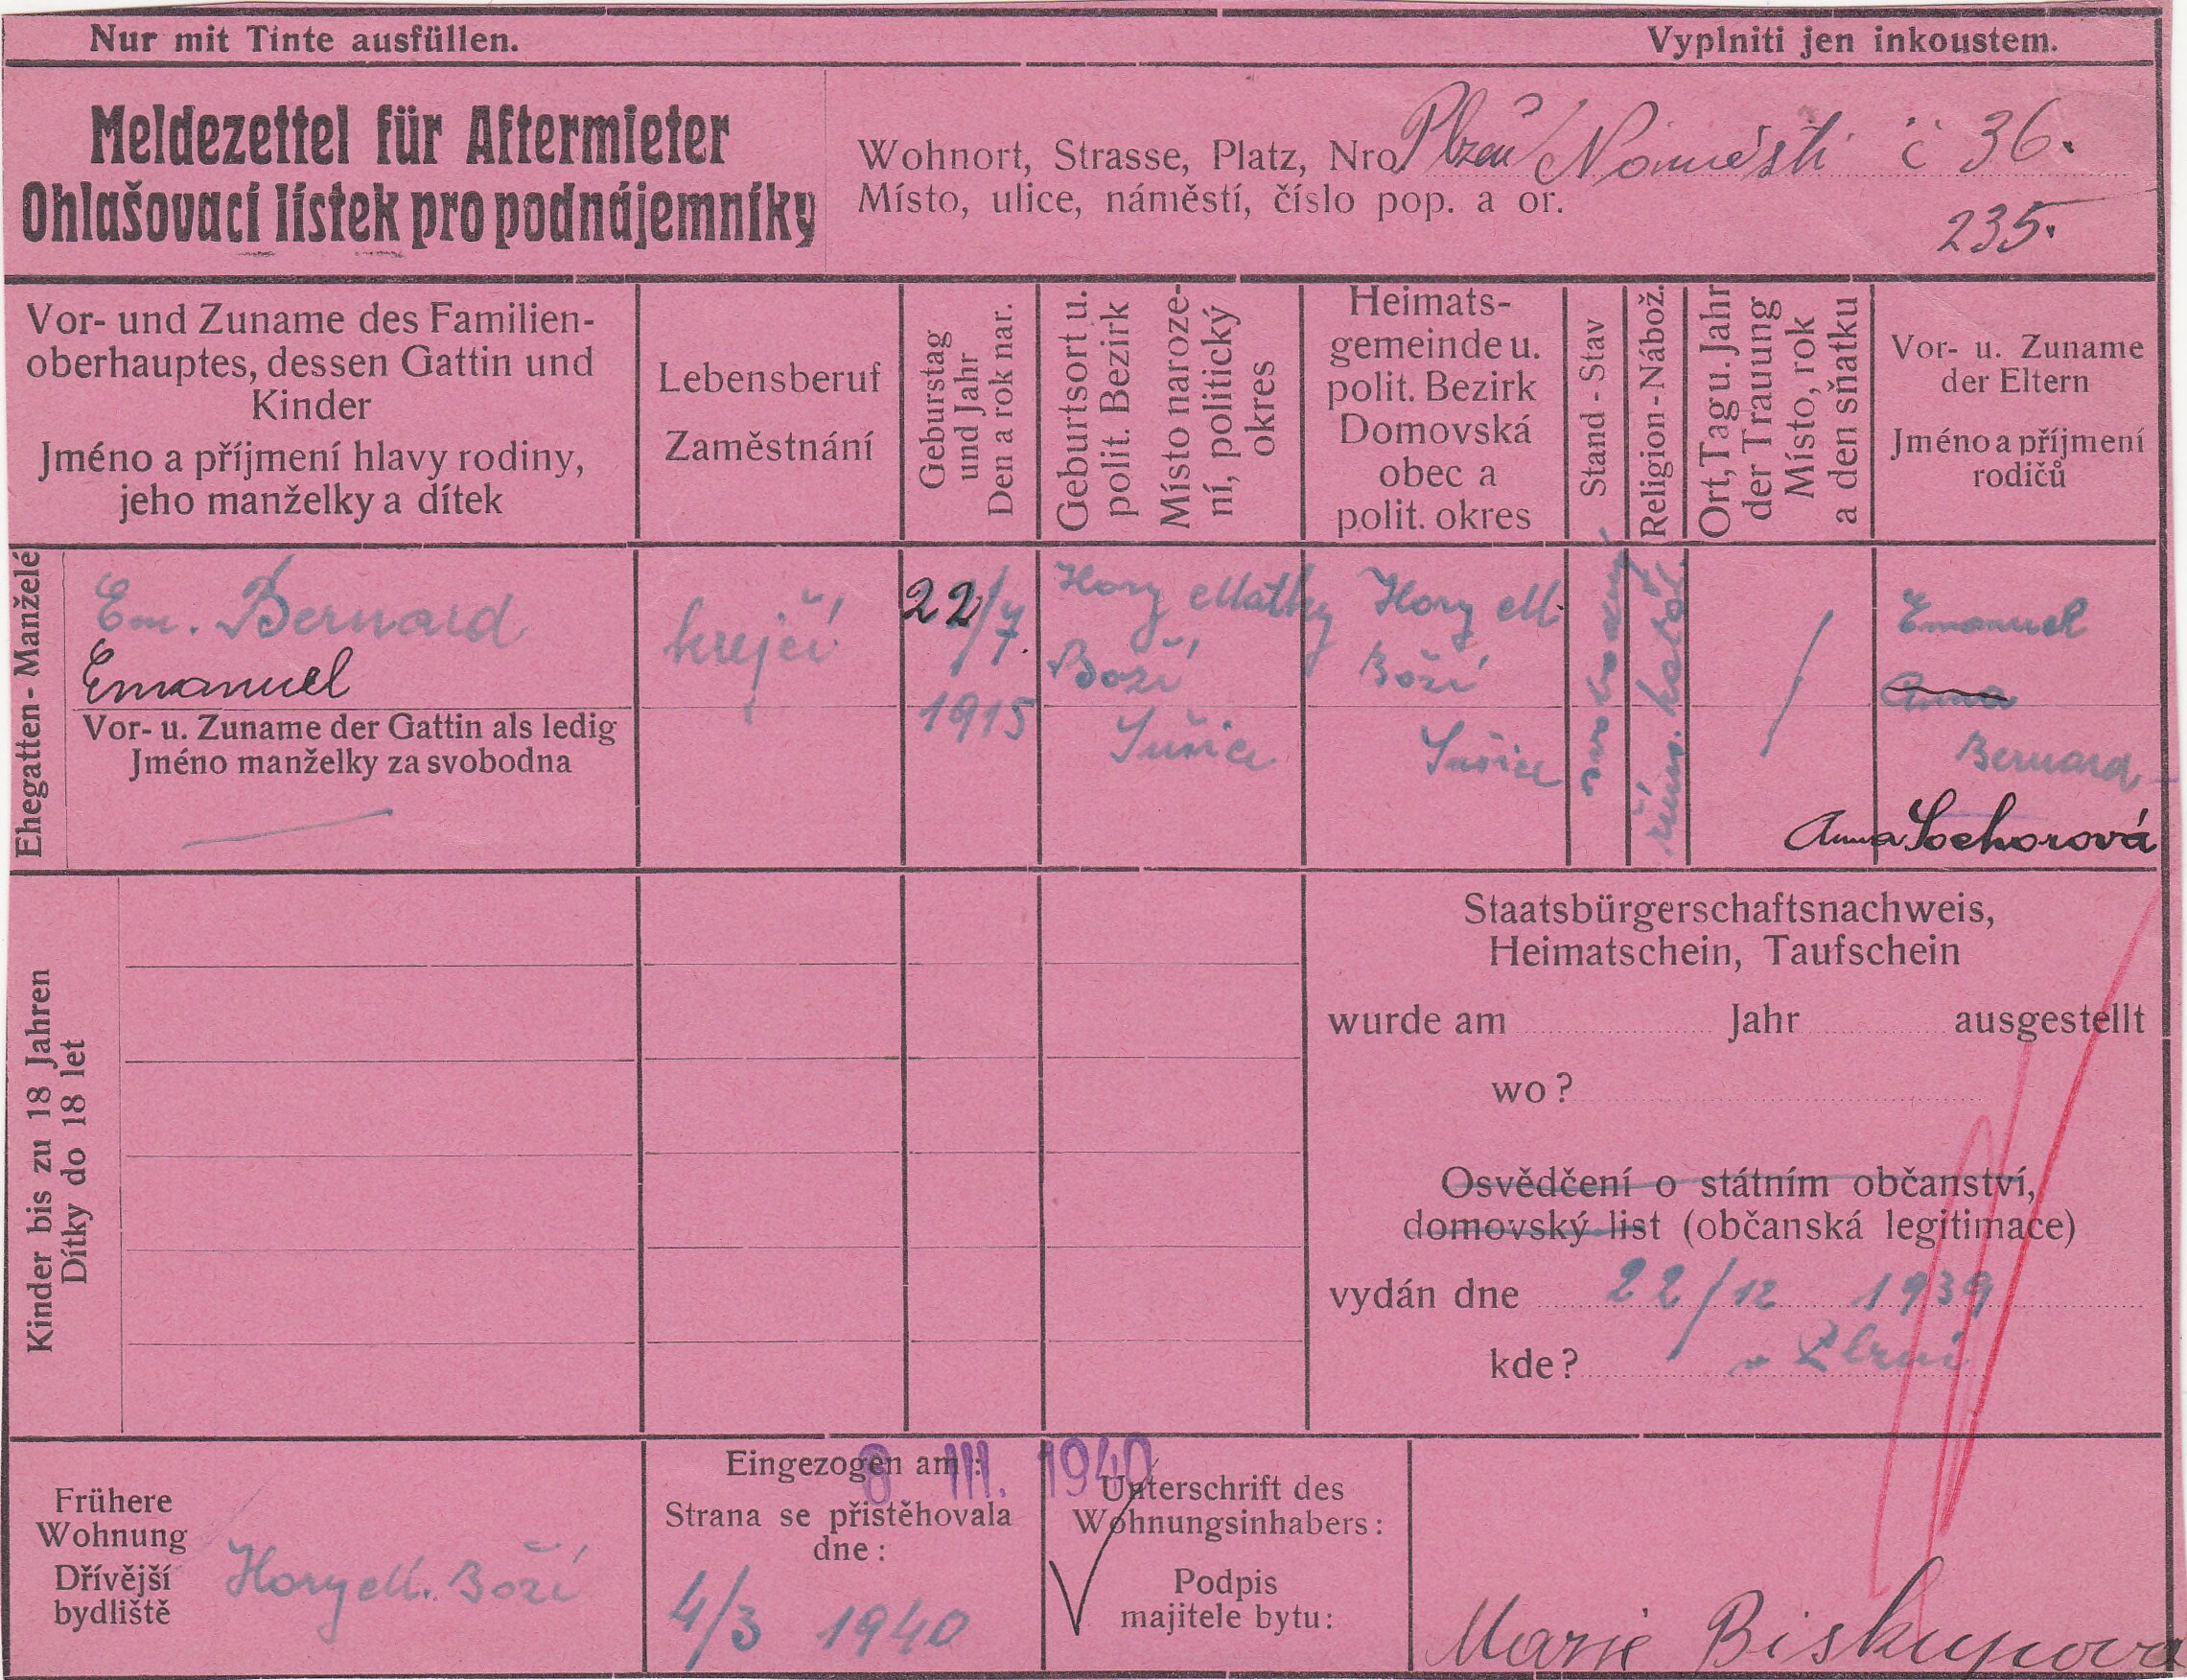 Nur mit Tinte ausfüllen.
Vyplniti jen inkoustem.
Meldezettel für Aftermieter
Ohlašovací lístek pro podnájemníky
Wohnort, Strasse, Platz, Nro Plzeň Náměstí č 36.
Místo, ulice, náměstí, číslo pop. a or.
235.
Vor- und Zuname des Familien-
oberhauptes, dessen Gattin und
Kinder
Jméno a příjmení hlavy rodiny,
jeho manželky a dítek
Lebensberuf
Zaměstnání
Geburstag
und Jahr
Den a rok nar.
Geburtsort u.
polit. Bezirk
Místo naroze-
ní, politický
okres
Heimats-
gemeinde u.
polit. Bezirk
Domovská
obec a
polit. okres
Stand - Stav
Religion - Nábož.
Ort, Tag u. Jahr
der Trauung
Místo, rok
a den sňatku
Vor- u. Zuname
der Eltern
Jméno a příjmení
rodičů
Ehegatten - Manželé
Em. Bernard
Emanuel
Vor- u. Zuname der Gattin als ledig
Jméno manželky za svobodna
krejčí
22/7.
1915
Hory Matky
Boží
Sušice
Hory M.
Boží
Sušice
svobodný
řím. katol.
Emanuel
Anna
Bernard
Anna Sochorová
Kinder bis zu 18 Jahren
Dítky do 18 let
Staatsbürgerschaftsnachweis,
Heimatschein, Taufschein
wurde am Jahr ausgestellt
wo?
Osvědčení o státním občanství,
domovský list (občanská legitimace)
vydán dne 22/12 1939
kde? v
Frühere
Wohnung
Dřívější
bydliště
Hory M. Boží
Eingezogen am:
8 III. 1940
Strana se přistěhovala
dne:
4/3 1940
Unterschrift des
Wohnungsinhabers:
Podpis
majitele bytu:
Marie Biskupova